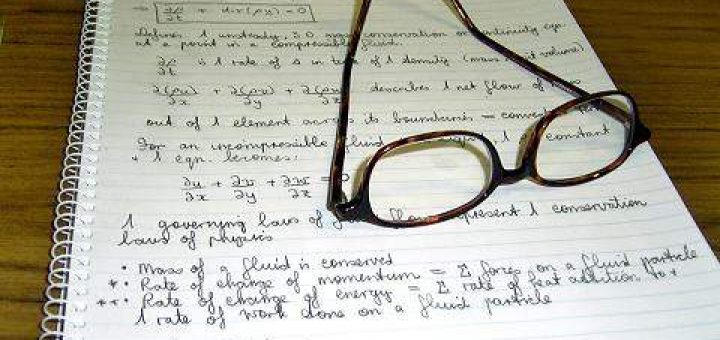 ∂ρ/∂t + div(ρu) = 0
Defines 1 unsteady, 3D mass conservation or continuity eqn
at a point in a compressible fluid.
∂ρ/∂t is 1 rate of Δ in of 1 density (mass volume)
∂(ρu)/∂x + ∂(ρv)/∂y + ∂(ρw)/∂z describes 1 net flow of mass
out of 1 element across its boundaries =
For an incompressible fluid 1 constant
+ 1 eqn. becomes:
∂u/∂x + ∂v/∂y + ∂w/∂z = 0
1 governing laws of flow represent 1 conservation
laws of physics
• Mass of a fluid is conserved
*• Rate of change of momentum = Σ forces on a fluid particle
**• Rate of change of energy = Σ rate of heat addition to +
1 rate of work done on a fluid particle